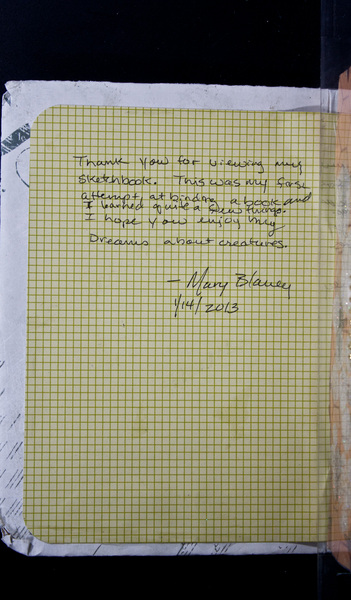 Thank you for viewing my
sketchbook. This was my first
attempt at binding a book and
I learned quite a few things.
I hope you enjoy my
Dreams about creatures.
- Mary Blaney
1/14/2013